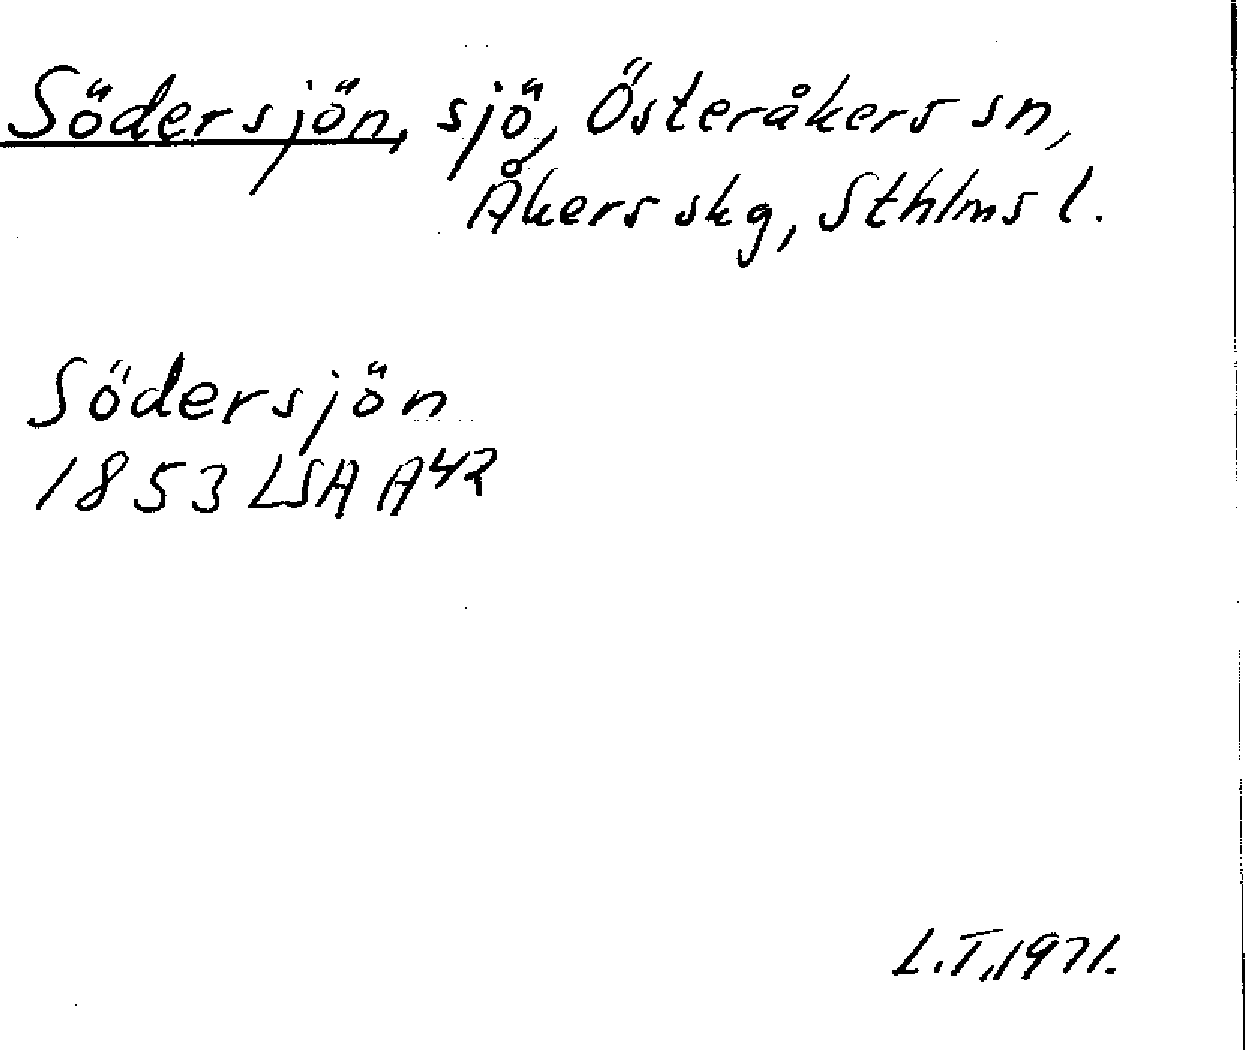 Södersjön, sjö, Österåkers sn,
Åkers skg, Sthlms l.
Södersjön
1853 LSA A42
L.T., 1971.